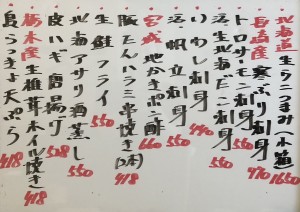 北海道 生ウニつまみ(小箱) 1650
長崎産 寒ぶり刺身 770
トロサーモン刺身 550
活〆北海だこ刺身 550
いわし刺身 440
活〆帆立刺身 550
宮城 地かきポン酢 660
豚たんハラミ串焼き(2本) 418
生鮭フライ 550
北海アサリ酒蒸し 550
皮ハギ唐揚げ 528
栃木産 生椎茸ホイル焼き 418
島らっきょ天ぷら 418